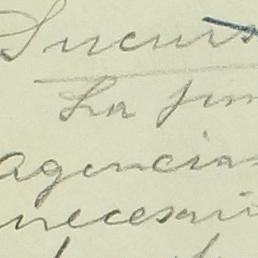 Sucurs
La fun
agencias
necesari